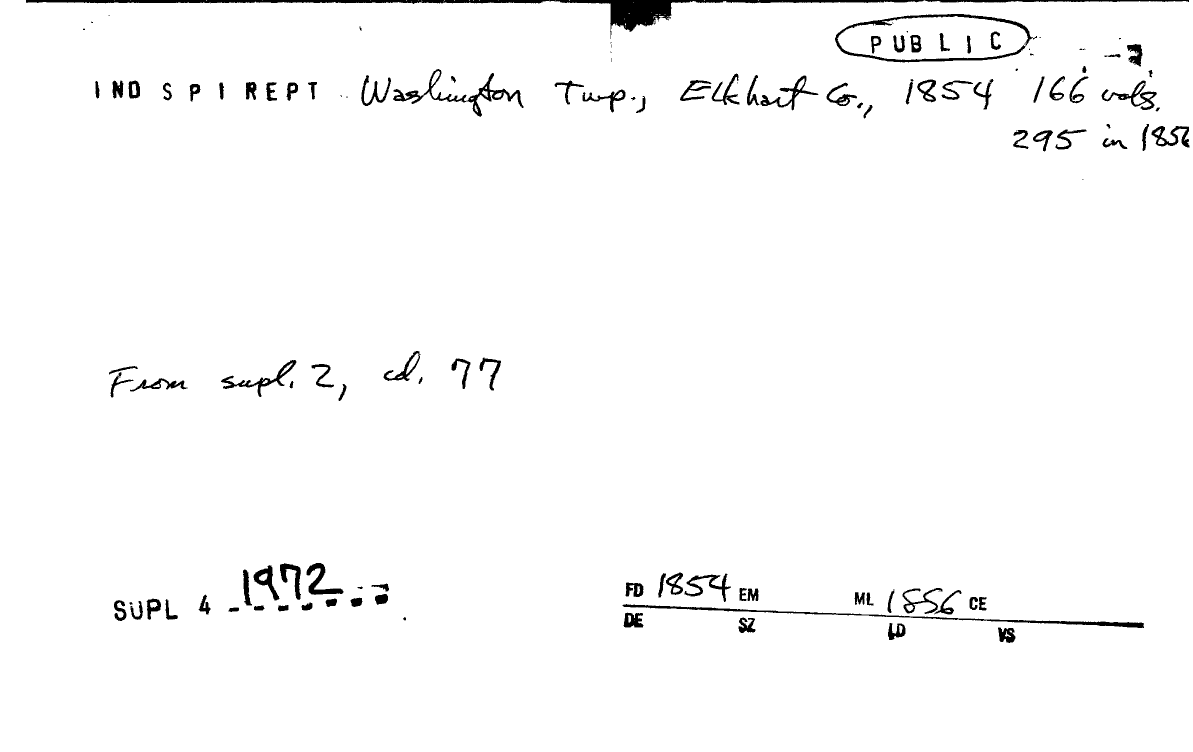 PUBLIC
IND SPI REPT Washington Twp., Elkhart Co., 1854 166 vols.
295 in 1856
From supl. 2, cd. 77
SUPL 4 1972
FD 1854 EM ML 1856 CE
DE SZ LD VS